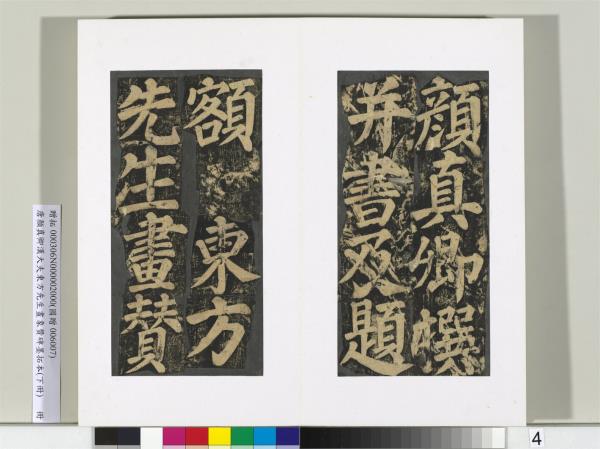 顔真卿撰
并書及題
額 東方
先生畫贊
贈拓 000306N000002000(國贈 006007)
唐顏真卿漢大夫東方先生畫象贊碑墨拓本(下冊) 冊
4